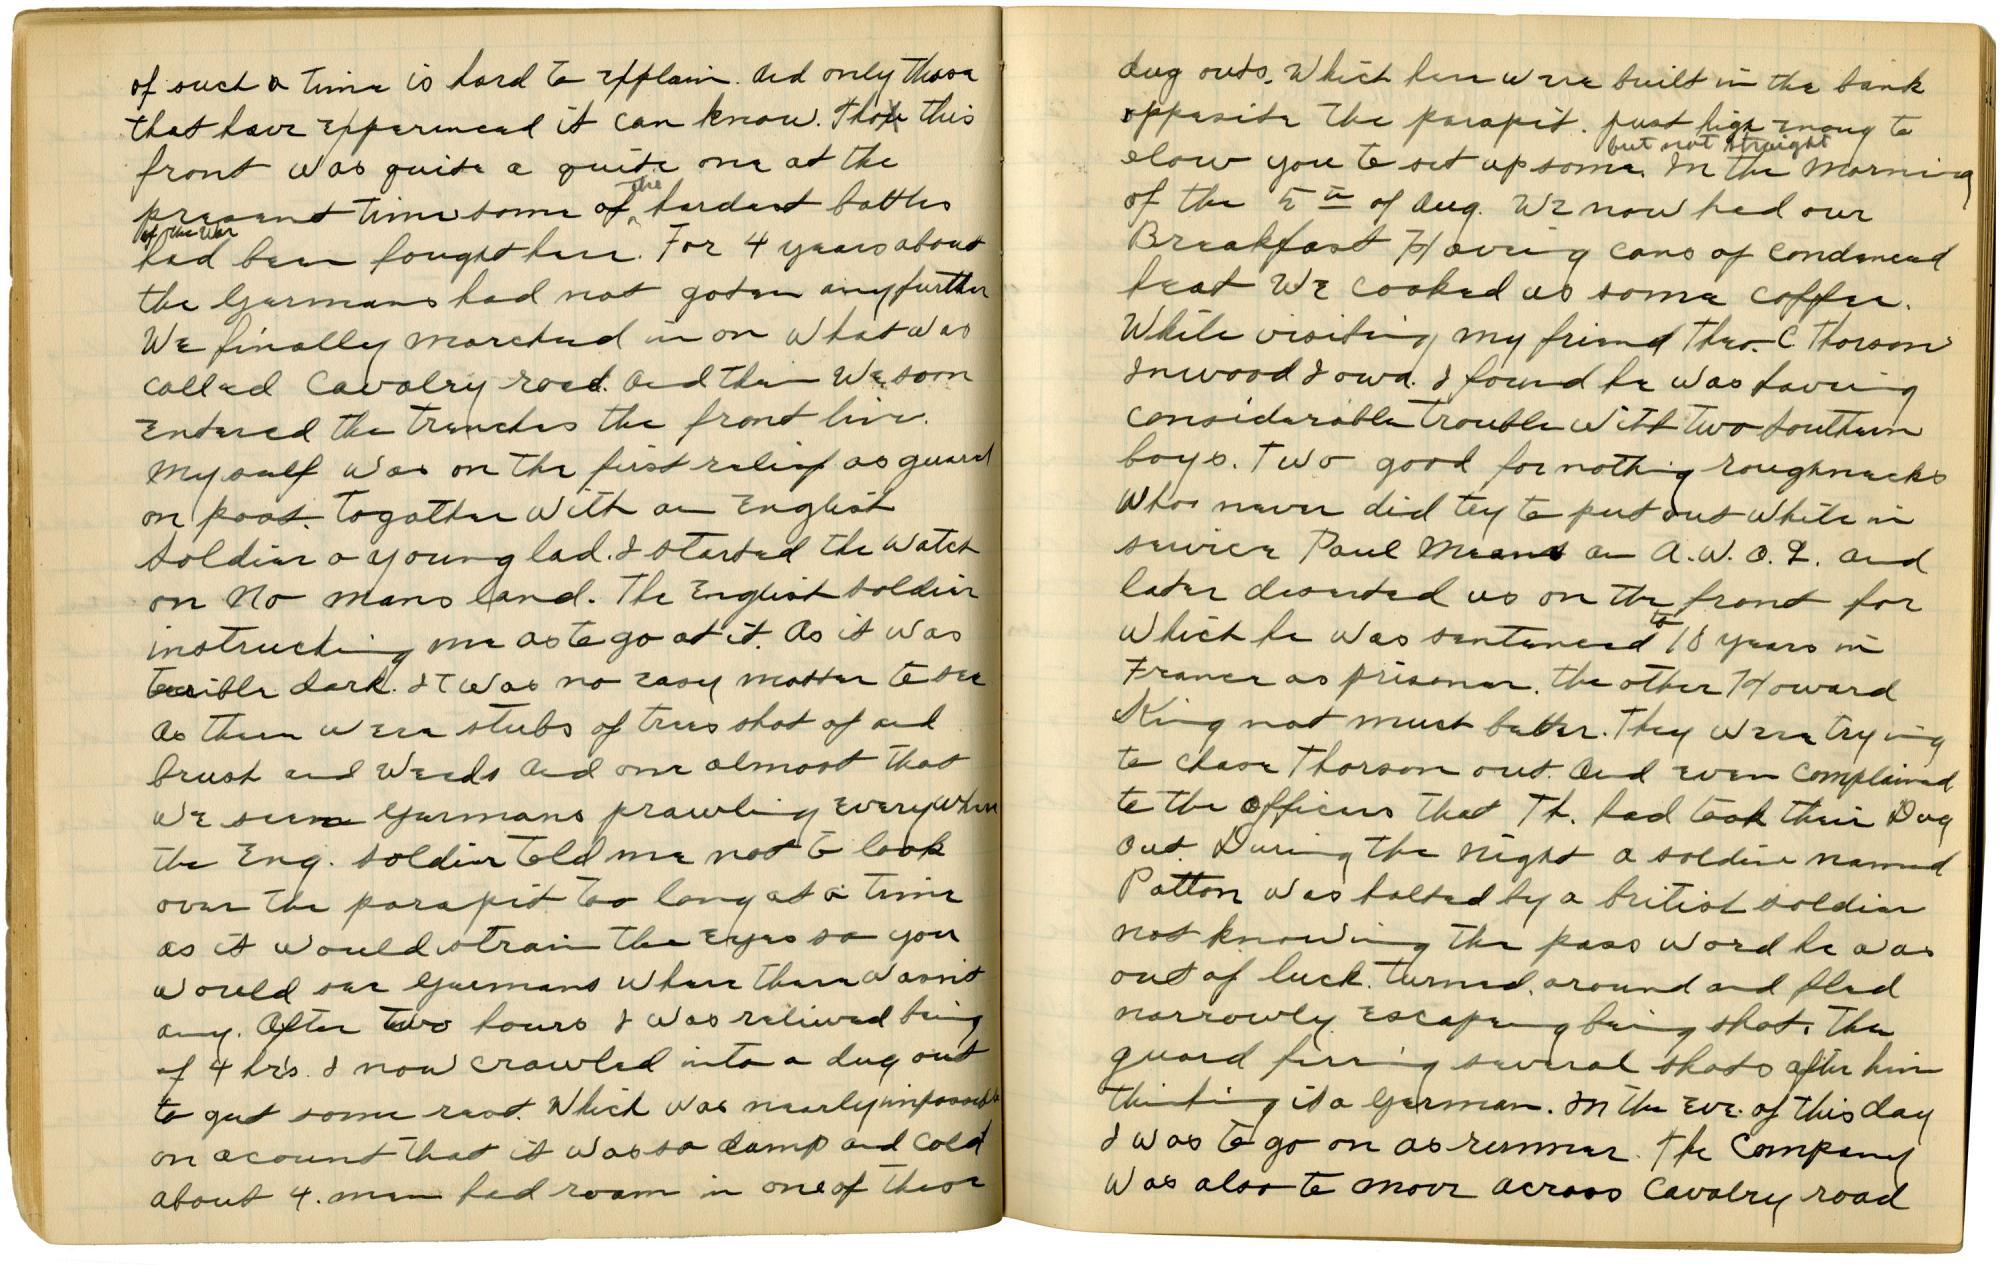 of such a time is hard to epplain. and only those
that have epperienced it can know. Tho this
front was quite a quite one at the
present time some of the hardest battles
of the war
had been fought here. For 4 years about
the Germans had not goten any further
We finally marched in on what was
called Cavalry road. and then We soon
Entered the trenches the front line.
My self was on the first relief as guard
on post. Togather with an English
soldier a young lad. I started the watch
on No mans land. The English soldier
instructing me as to go at it. As it was
terrible dark. It was no easy matter to see
As there were stubs of trees shot of and
brush and Weeds and one almost that
We seen Germans prawling Everywhere
the Eng. soldier told me not to look
over the parapit too long at a time
as it would strain the Eyes so you
would see Germans where there wasn't
any. After two hours I was relieved being
of 4 hrs. I now crawled into a dug out
to get some rest. Which was nearly impossible
on acount that it was so damp and cold
about 4. men had room in one of these
dug outs. Which here were built in the bank
oppasite the parapit. just high enoug to
but not straight
elow you to set up some. In the morning
of the 5th of Aug. We now had our
Breakfast Having cans of condenced
heat We cooked us some coffee.
While visiting my friend Theo. C Thorson
Inwood Iowa. I found he was having
considerable trouble with two southern
boys. Two good for nothing roughnecks
Who never did try to put out while in
service Paul Means an A.W.O.L. and
later deserted us on the front for
which he was sentenced to 18 years in
France as prisoner. the other Howard
King not much better. They were trying
to chase Thorson out. And even complained
to the Officers that Th. had took their Dug
out. During the night a soldier named
Patton was halted by a british soldier
not knowing the pass word he was
out of luck. turned. around and fled
narrowly Escaping being shot. The
guard firing several shots after him
thinking it a German. In the Eve. of this day
I was to go on as runner. The Company
was also to move across Cavalry road